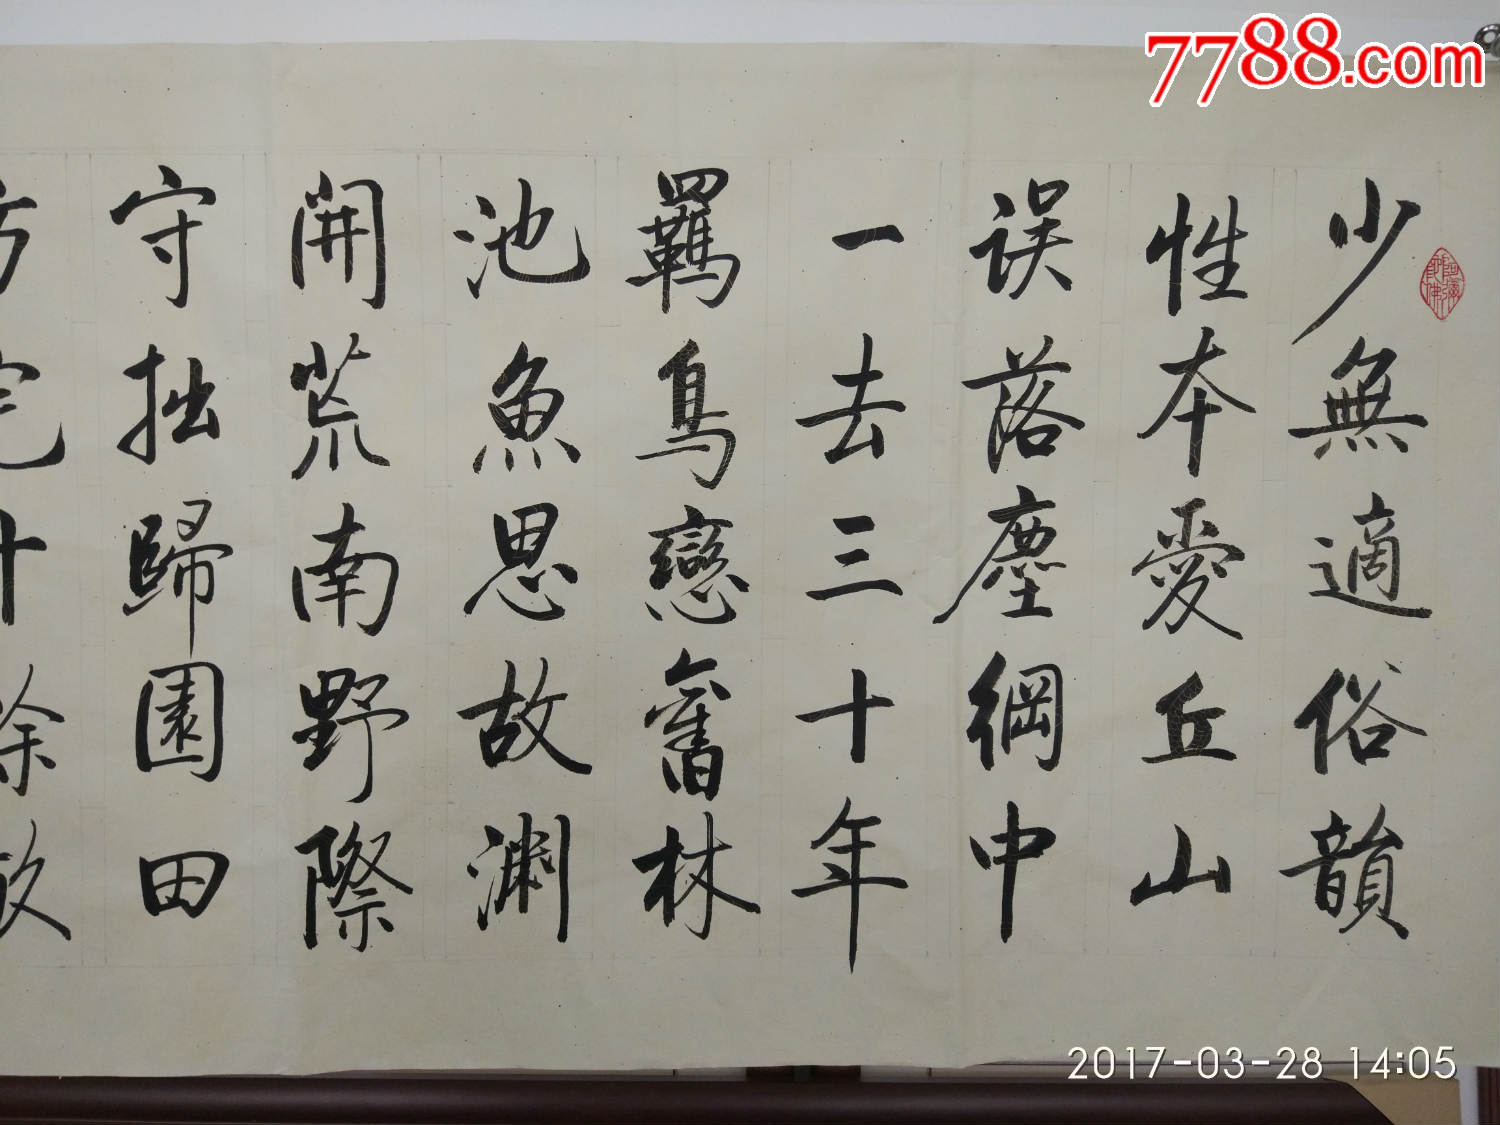 7788.com
少無適俗韻
性本愛丘山
误落塵綱中
一去三十年
羈鳥戀舊林
池魚思故渊
開荒南野際
守拙歸園田
阿彌陀佛
2017-03-28 14:05